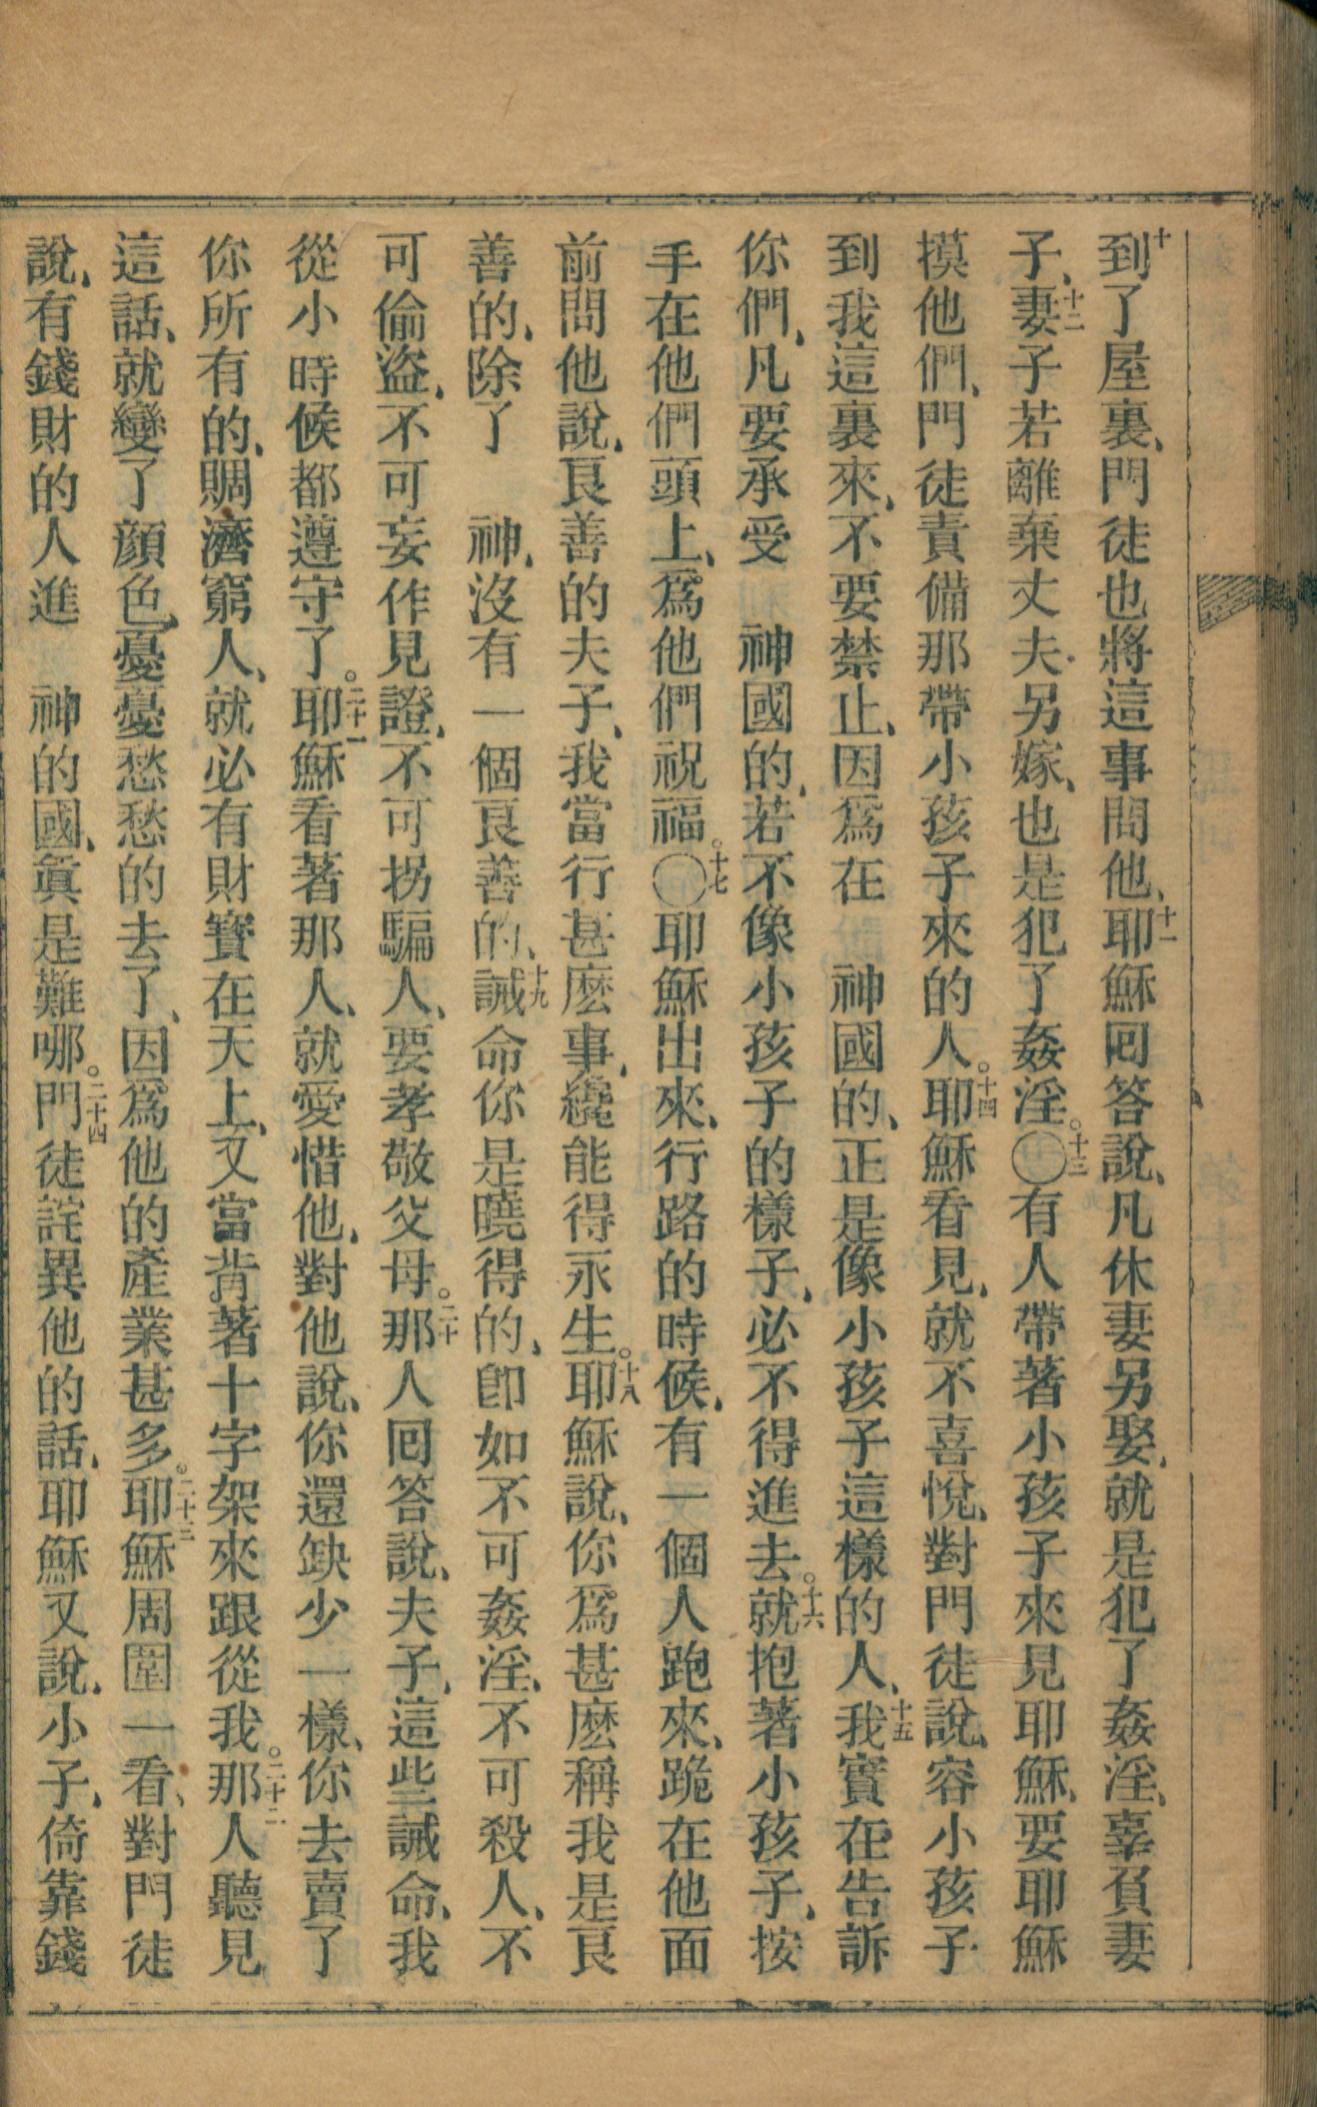 十到了屋裏、門徒也將這事問他、十一耶穌回答說、凡休妻另娶、就是犯了姦淫、辜負妻
子、十二妻子若離棄丈夫、另嫁、也是犯了姦淫。十三〇有人帶著小孩子來見耶穌、要耶穌
摸他們、門徒責備那帶小孩子來的人。十四耶穌看見、就不喜悅、對門徒說、容小孩子
到我這裏來、不要禁止、因爲在　神國的、正是像小孩子這樣的人、十五我實在告訴
你們、凡要承受　神國的、若不像小孩子的樣子、必不得進去。十六就抱著小孩子、按
手在他們頭上、爲他們祝福。十七〇耶穌出來、行路的時候、有一個人跑來、跪在他面
前問他說、良善的夫子、我當行甚麽事、纔能得永生。十八耶穌說、你爲甚麽稱我是良
善的、除了　神、沒有一個良善的、十九誡命你是曉得的、卽如不可姦淫、不可殺人、不
可偷盜、不可妄作見證、不可拐騙人、要孝敬父母。二十那人回答說、夫子、這些誡命、我
從小時候都遵守了。二十一耶穌看著那人、就愛惜他、對他說、你還缺少一樣、你去賣了
你所有的、賙濟窮人、就必有財寶在天上、又當背著十字架來跟從我。二十二那人聽見
這話、就變了顏色、憂憂愁愁的去了、因爲他的產業甚多。二十三耶穌周圍一看、對門徒
說、有錢財的人進　神的國、眞是難哪。二十四門徒詫異他的話、耶穌又說、小子、倚靠錢